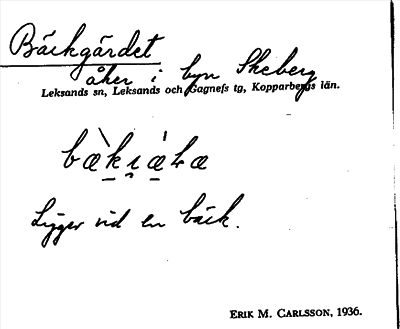 Bäckgärdet
åker i byn Skeberg
Leksands sn, Leksands och Gagnefs tg, Kopparbergs län.
Ligger vid en bäck.
ERIK M. CARLSSON, 1936.